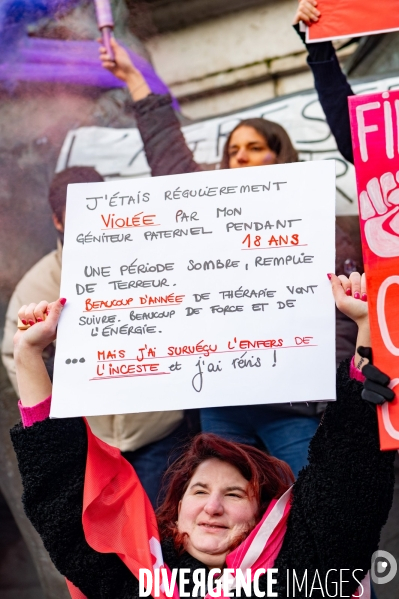 J'ÉTAIS RÉGULIÈREMENT
VIOLÉE PAR MON
GÉNITEUR PATERNEL PENDANT
18 ANS
UNE PÉRIODE SOMBRE, REMPLIE
DE TERREUR.
BEAUCOUP D'ANNÉE DE THÉRAPIE VONT
SUIVRE. BEAUCOUP DE FORCE ET DE
L'ÉNERGIE.
... MAIS J'AI SURVÉÇU L'ENFERS DE
L'INCESTE et j'AI REVIS !
DIVERGENCE IMAGES